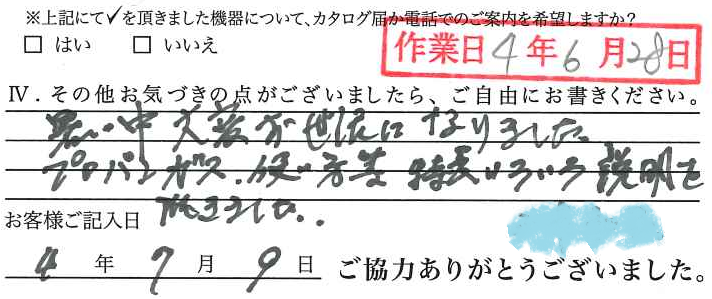 ※上記にて✓を頂きました機器について、カタログ届か電話でのご案内を希望しますか?
□ はい □ いいえ
作業日4年6月28日
Ⅳ．その他お気づきの点がございましたら、ご自由にお書きください。
暑い中大変お世話になりました。
プロパンガス、使い方等 特長いろいろ説明を
頂きました．．
お客様ご記入日
4年7月9日 ご協力ありがとうございました。